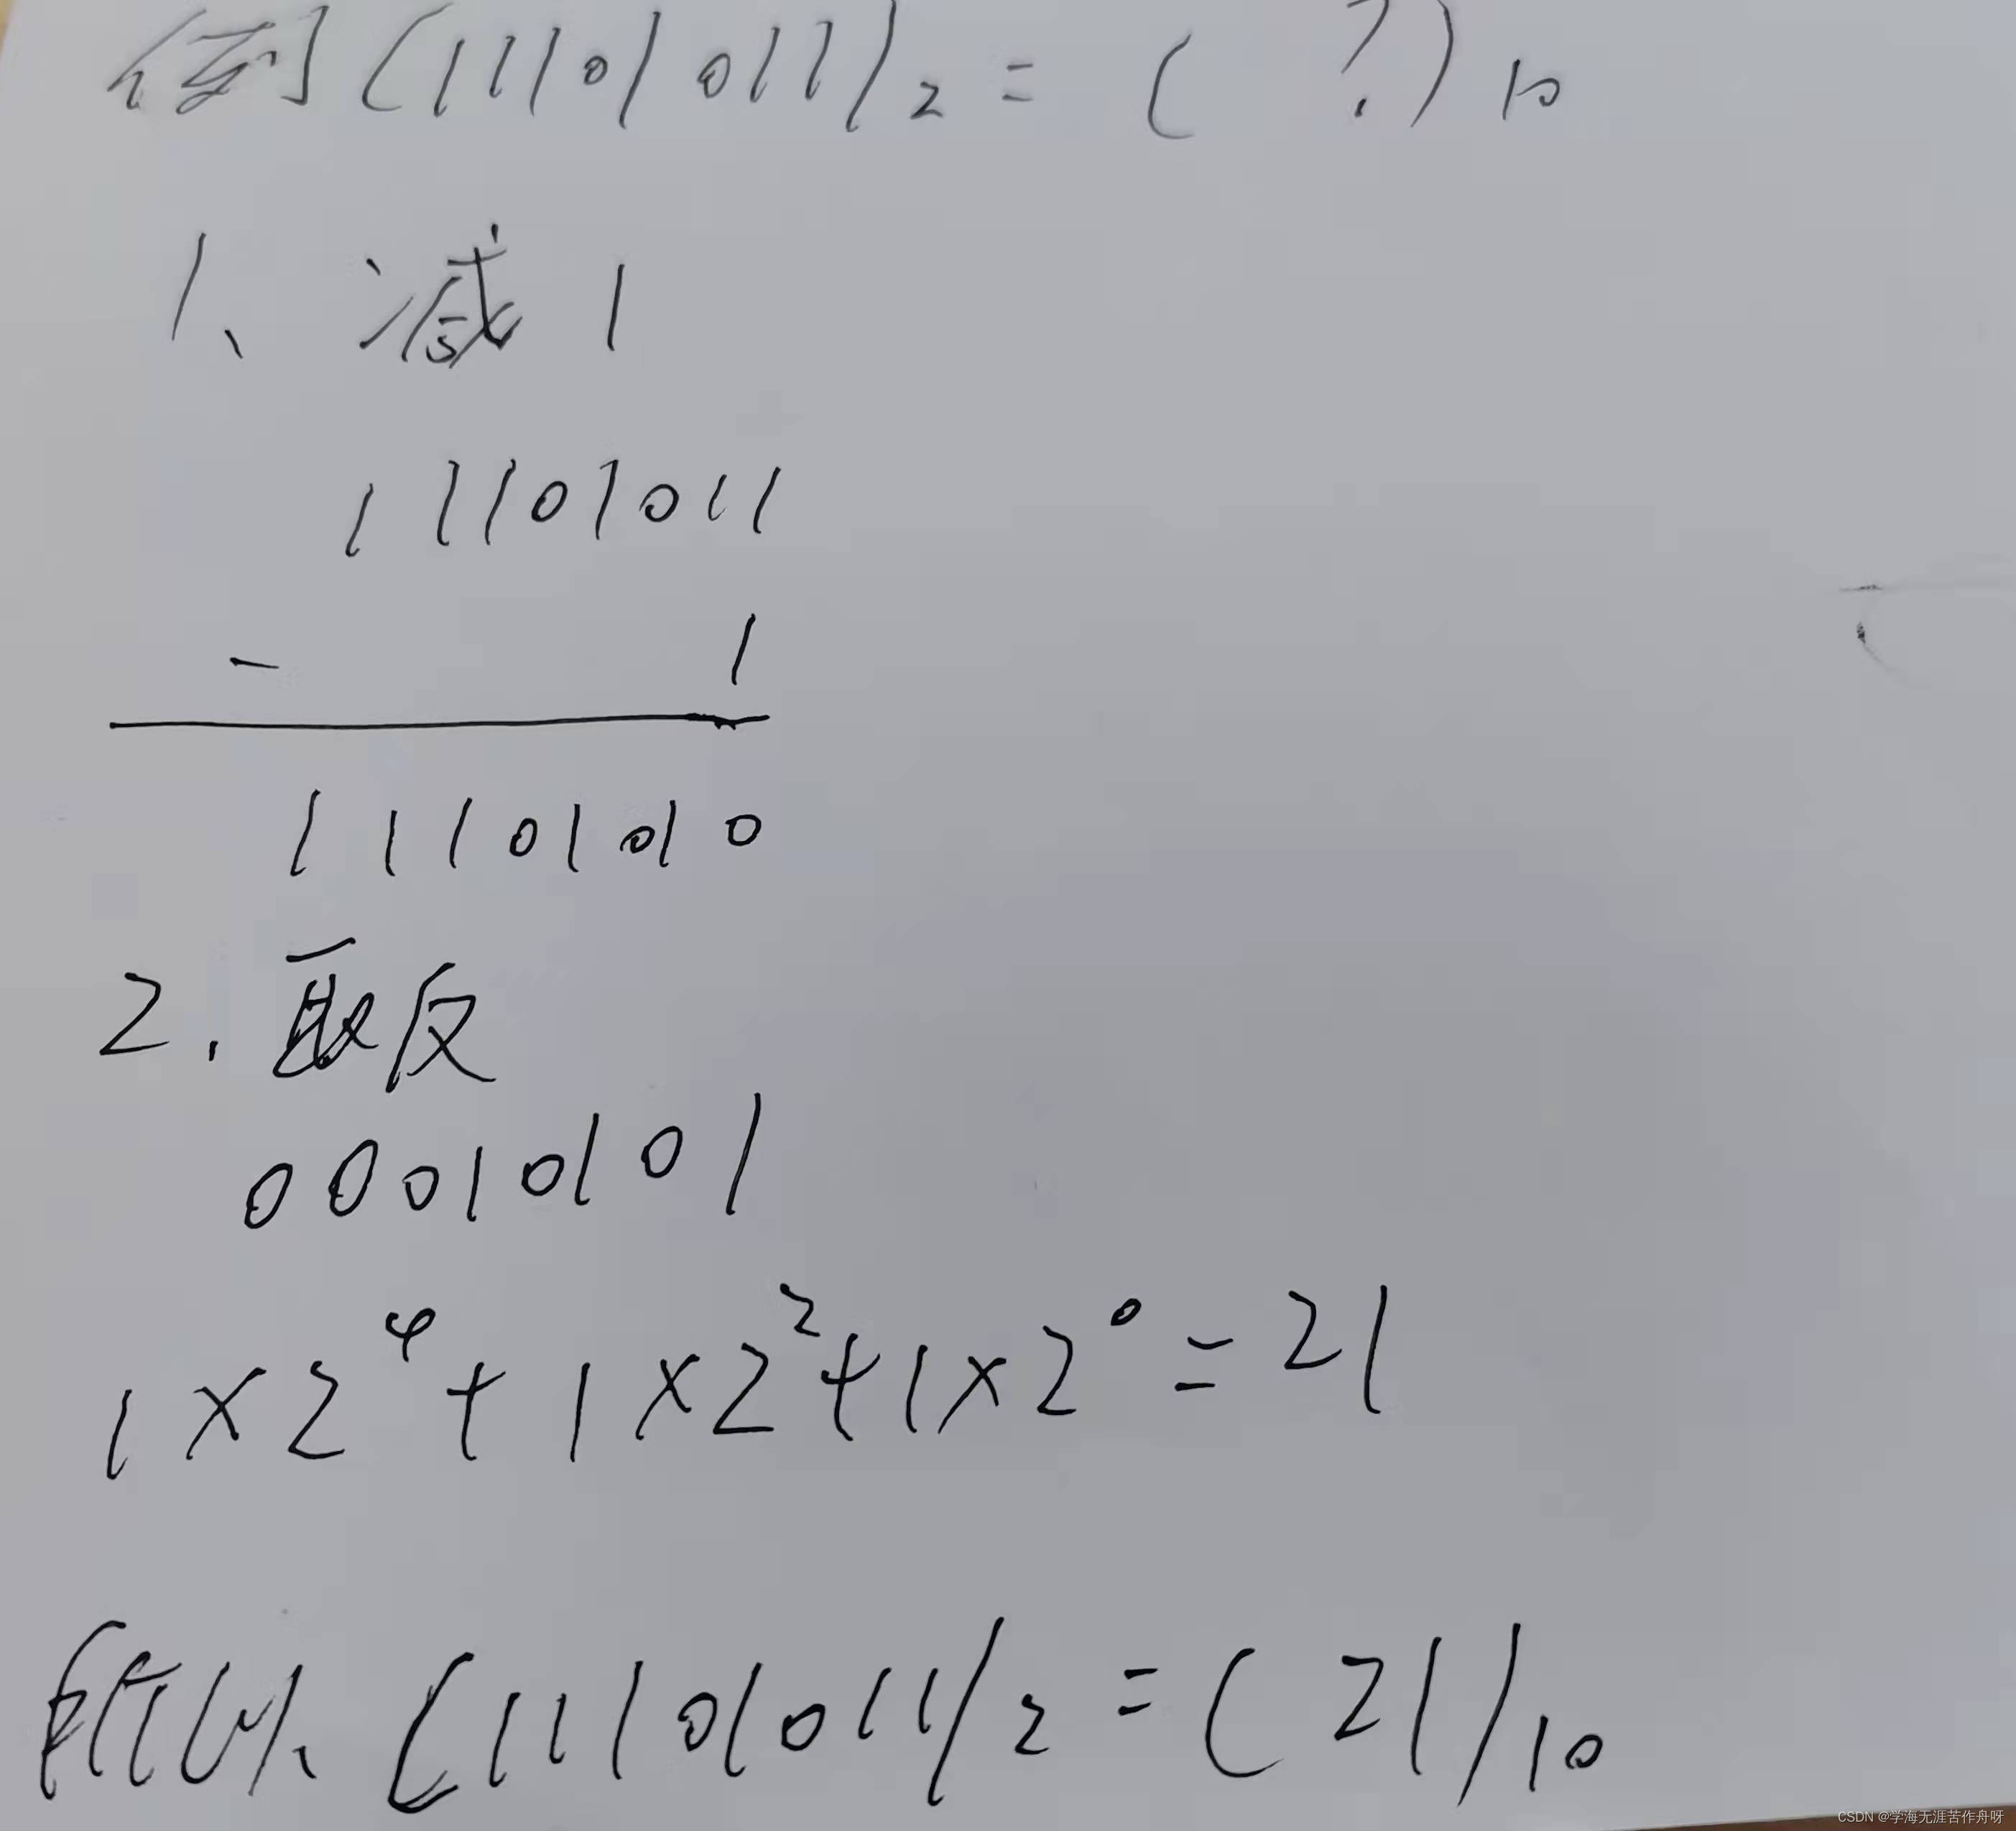 例 (11101011)₂ = ( ? )₁₀
1、减1
11101011
- 1
11101010
2.取反
00010101
1×2⁴+1×2²+1×2⁰=21
所以、(11101011)₂=(21)₁₀
CSDN @学海无涯苦作舟呀